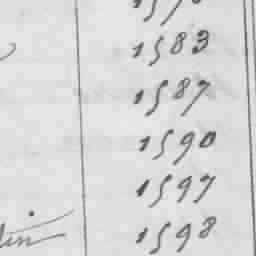 1583
1587
1590
1597
1598